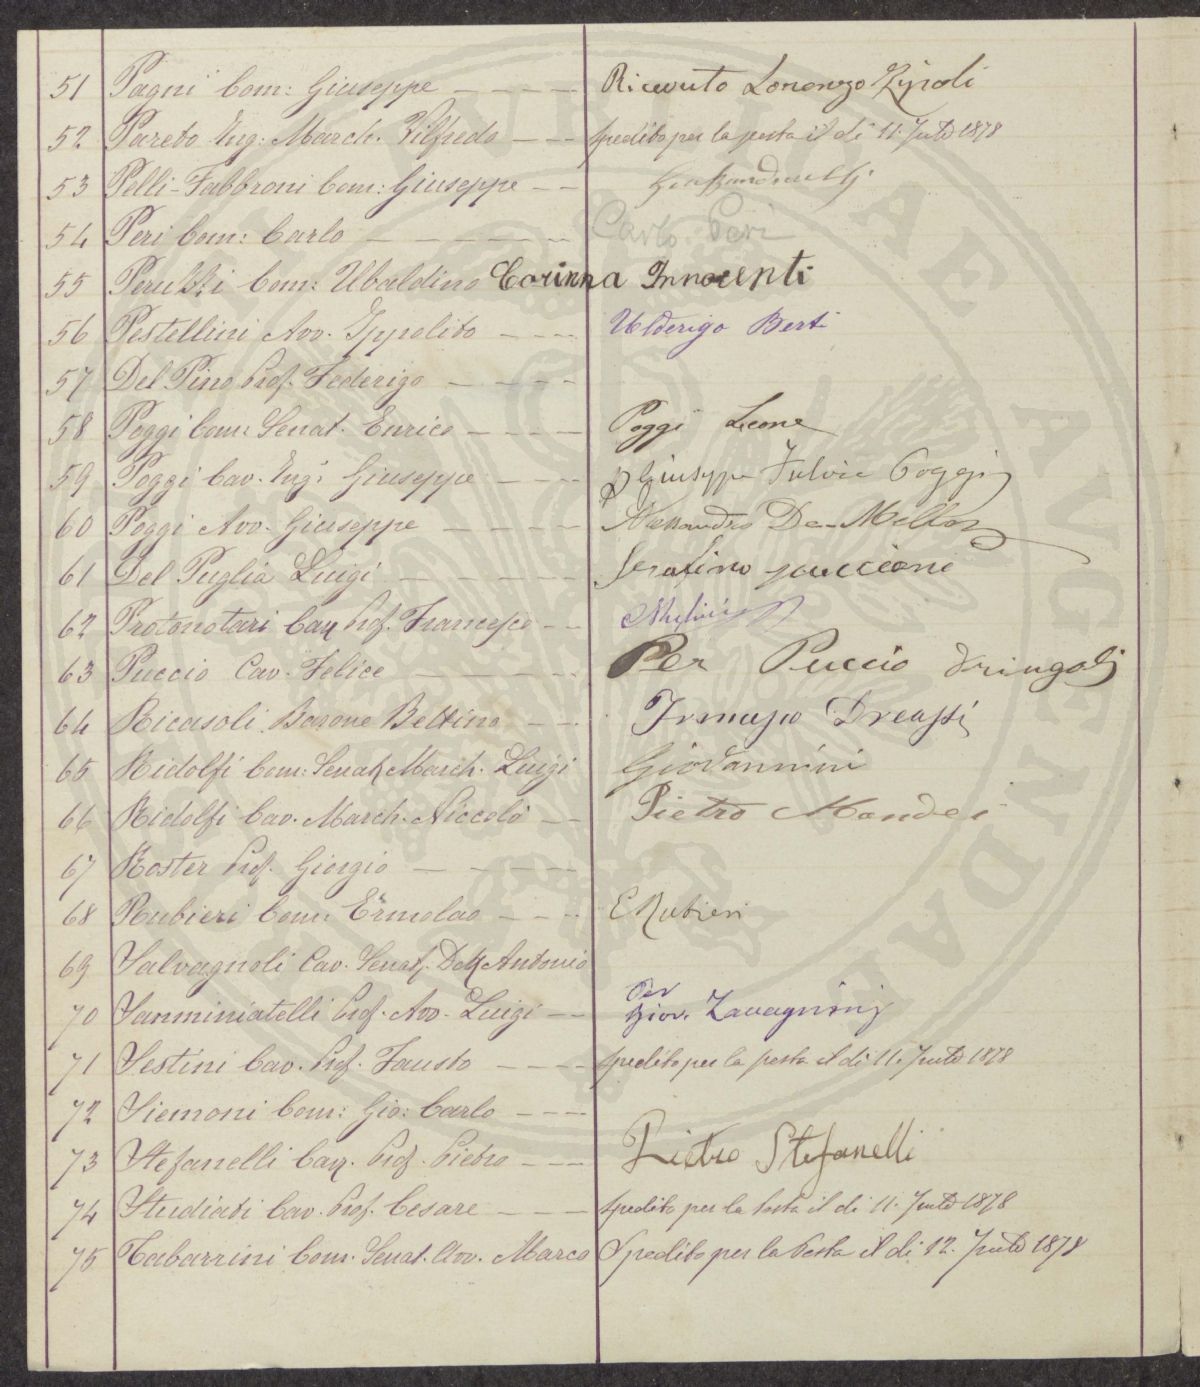 51 Pagni Com: Giuseppe Ricevuto Lorenzo
52 Pareto Ing: March. Vilfredo Spedito per la posta il di 11. 1878
53 Pelli-Fabbroni Com: Giuseppe
54 Peri Com: Carlo Carlo Peri
55 Peruzzi Com: Ubaldino Corinna Innocenti
56 Pestellini Avv. Ippolito Ulderigo Berti
57 Del Pino Prof. Federigo
58 Poggi Com: Senat. Enrico Poggi Leone
59 Poggi Cav. Ing: Giuseppe p Giuseppe Fulvio Poggi
60 Poggi Avv. Giuseppe Alessandro De-
61 Del Puglia Luigi Serafino
62 Protonotari Cav. Prof. Francesco
63 Puccio Cav. Felice Per Puccio Dringoli
64 Ricasoli Barone Bettino
65 Ridolfi Com: Senat. March. Luigi Giovannini
66 Ridolfi Cav. March. Niccolò Pietro
67 Roster Prof. Giorgio
68 Rubieri Com: Ermolao E Rubieri
69 Salvagnoli Cav. Senat. Dott. Antonio
70 Sanminiatelli Prof. Avv. Luigi Per
Giov. Zavagnini
71 Sestini Cav. Prof. Fausto Spedito per la posta il di 11. 1878
72 Siemoni Com: Gio: Carlo
73 Stefanelli Cav. Prof. Pietro Pietro Stefanelli
74 Studiati Cav. Prof. Cesare Spedito per la Posta il di 11. 1878
75 Tabarrini Com. Senat. Avv. Marco Spedito per la Posta il di 12. 1878